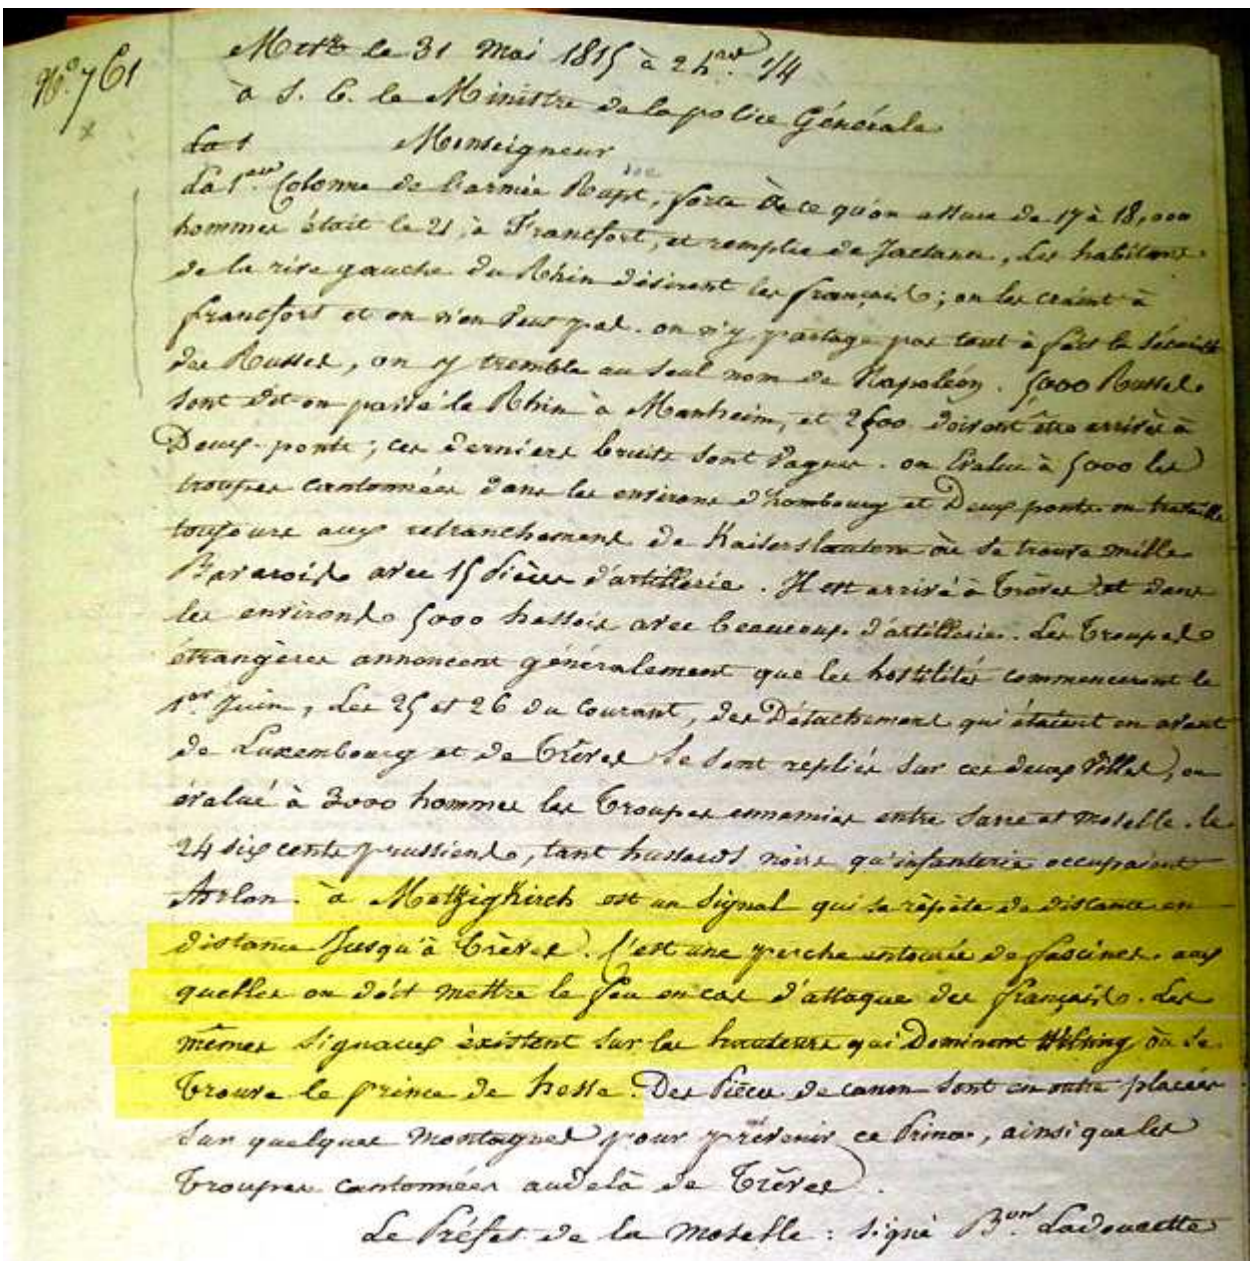 N.º 761
Metz le 31 Mai 1815 à 2 h.res 1/4
à S. E. le Ministre de la police Générale
La 1
Monseigneur
La 1ere Colonne de l'armée Russe, forte à ce qu'on assure de 17 à 18,000
hommes était le 21, à Francfort, et remplie de Jactance, Les habitans
de la rive gauche du Rhin désirent les français ; on les craint à
francfort et on n'en veut pas. on n'y partage pas tout à fait la sécurité
des Russes, on y tremble au seul nom de Napoléon. 5000 Russes
sont dit on passé le Rhin à Manheim, et 2500 doivent être arrivés à
Deux-ponts ; ces derniers bruits sont vagues. on Evalue à 5000 les
troupes cantonnées dans les environs d'hombourg et Deux ponts on travaille
toujours aux retranchemens de Kaiserslautern où se trouve mille
Bavarois avec 15 pièces d'artillerie. Il est arrivé à Trèves et dans
les environs 5000 hessois avec beaucoup d'artillerie. Les Troupes
étrangères annoncent généralement que les hostilités commenceront le
1er Juin, Les 25 et 26 du Courant, des Détachemens qui étaient en avant
de Luxembourg et de Trèves se sont repliés sur ces deux Villes, on
évalue à 3000 hommes les Troupes ennemies entre Sarre et Moselle. le
24 six cents prussiens, tant hussards noirs qu'infanterie occupaient
Arlon. à Metzigkirch est un signal qui se répète de distance en
distance Jusqu'à Trèves. C'est une perche entourée de fascines. aux
quelles on doit mettre le feu en cas d'attaque des français. Les
mêmes signaux èxistent sur les hauteurs qui Dominent où se
Trouve le prince de hesse. Des Pièces de canon sont en outre placées
sur quelques montagnes pour prévenir ce Prince, ainsi que les
Troupes cantonnées audelà de Trèves.
Le Préfet de la Moselle : signé B.on Ladoucette